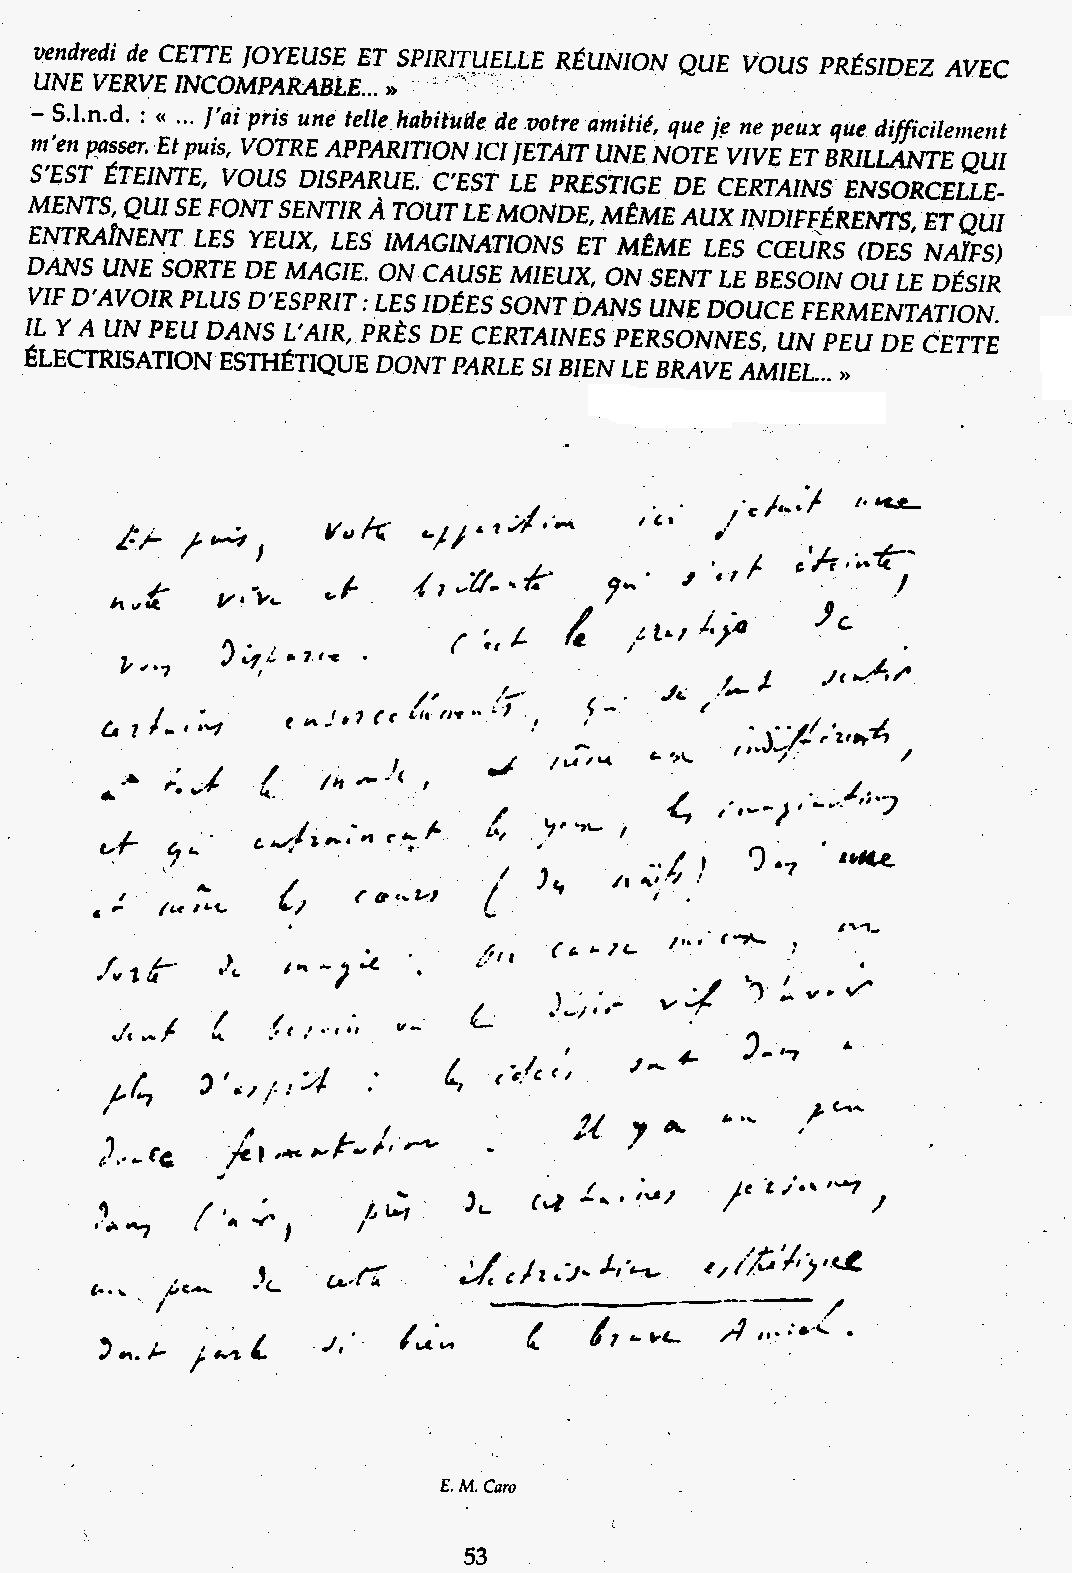 vendredi de CETTE JOYEUSE ET SPIRITUELLE RÉUNION QUE VOUS PRÉSIDEZ AVEC
UNE VERVE INCOMPARABLE... »
– S.l.n.d. : « ... J'ai pris une telle habitude de votre amitié, que je ne peux que difficilement
m'en passer. Et puis, VOTRE APPARITION ICI JETAIT UNE NOTE VIVE ET BRILLANTE QUI
S'EST ÉTEINTE, VOUS DISPARUE. C'EST LE PRESTIGE DE CERTAINS ENSORCELLE-
MENTS, QUI SE FONT SENTIR À TOUT LE MONDE, MÊME AUX INDIFFÉRENTS, ET QUI
ENTRAÎNENT LES YEUX, LES IMAGINATIONS ET MÊME LES CŒURS (DES NAÏFS)
DANS UNE SORTE DE MAGIE. ON CAUSE MIEUX, ON SENT LE BESOIN OU LE DÉSIR
VIF D'AVOIR PLUS D'ESPRIT : LES IDÉES SONT DANS UNE DOUCE FERMENTATION.
IL Y A UN PEU DANS L'AIR, PRÈS DE CERTAINES PERSONNES, UN PEU DE CETTE
ÉLECTRISATION ESTHÉTIQUE DONT PARLE SI BIEN LE BRAVE AMIEL... »
Et puis, votre apparition ici jetait une
note vive et brillante qui s'est éteinte,
vous disparue. C'est le prestige de
certains ensorcellements, qui se font sentir
à tout le monde, et même aux indifférents,
et qui entrainent les yeux, les imaginations
et même les cœurs (des naïfs) dans une
sorte de magie. On cause mieux, on
sent le besoin ou le désir vif d'avoir
plus d'esprit : les idées sont dans
douce fermentation. Il y a un peu
dans l'air, près de certaines personnes,
un peu de cette électrisation esthétique
dont parle si bien le brave Amiel.
E. M. Caro
53